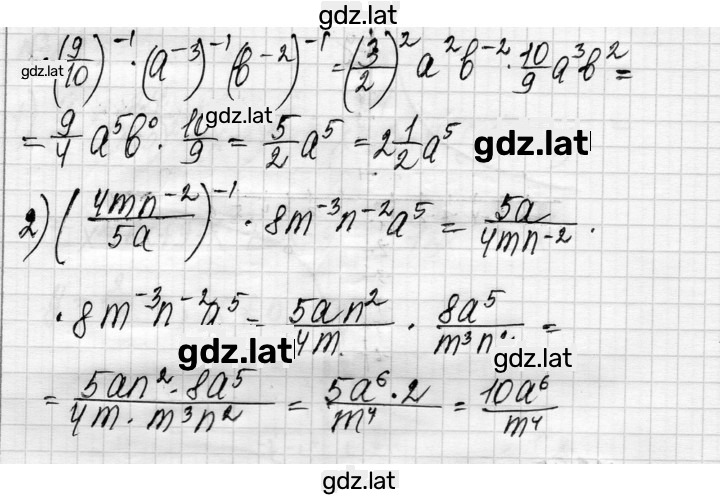 gdz.lat
· (9/10)⁻¹ · (a⁻³)⁻¹ (b⁻²)⁻¹ = (3/2)² a² b⁻² · 10/9 a³ b² =
gdz.lat
= 9/4 a⁵ b⁰ · 10/9 = 5/2 a⁵ = 2 1/2 a⁵
gdz.lat
2) (4mn⁻²/5a)⁻¹ · 8m⁻³n⁻²a⁵ = 5a/4mn⁻² ·
· 8m⁻³n⁻²a⁵ = 5an²/4m · 8a⁵/m³n² =
gdz.lat
gdz.lat
= 5an² · 8a⁵/4m · m³n² = 5a⁶ · 2/m⁴ = 10a⁶/m⁴
gdz.lat